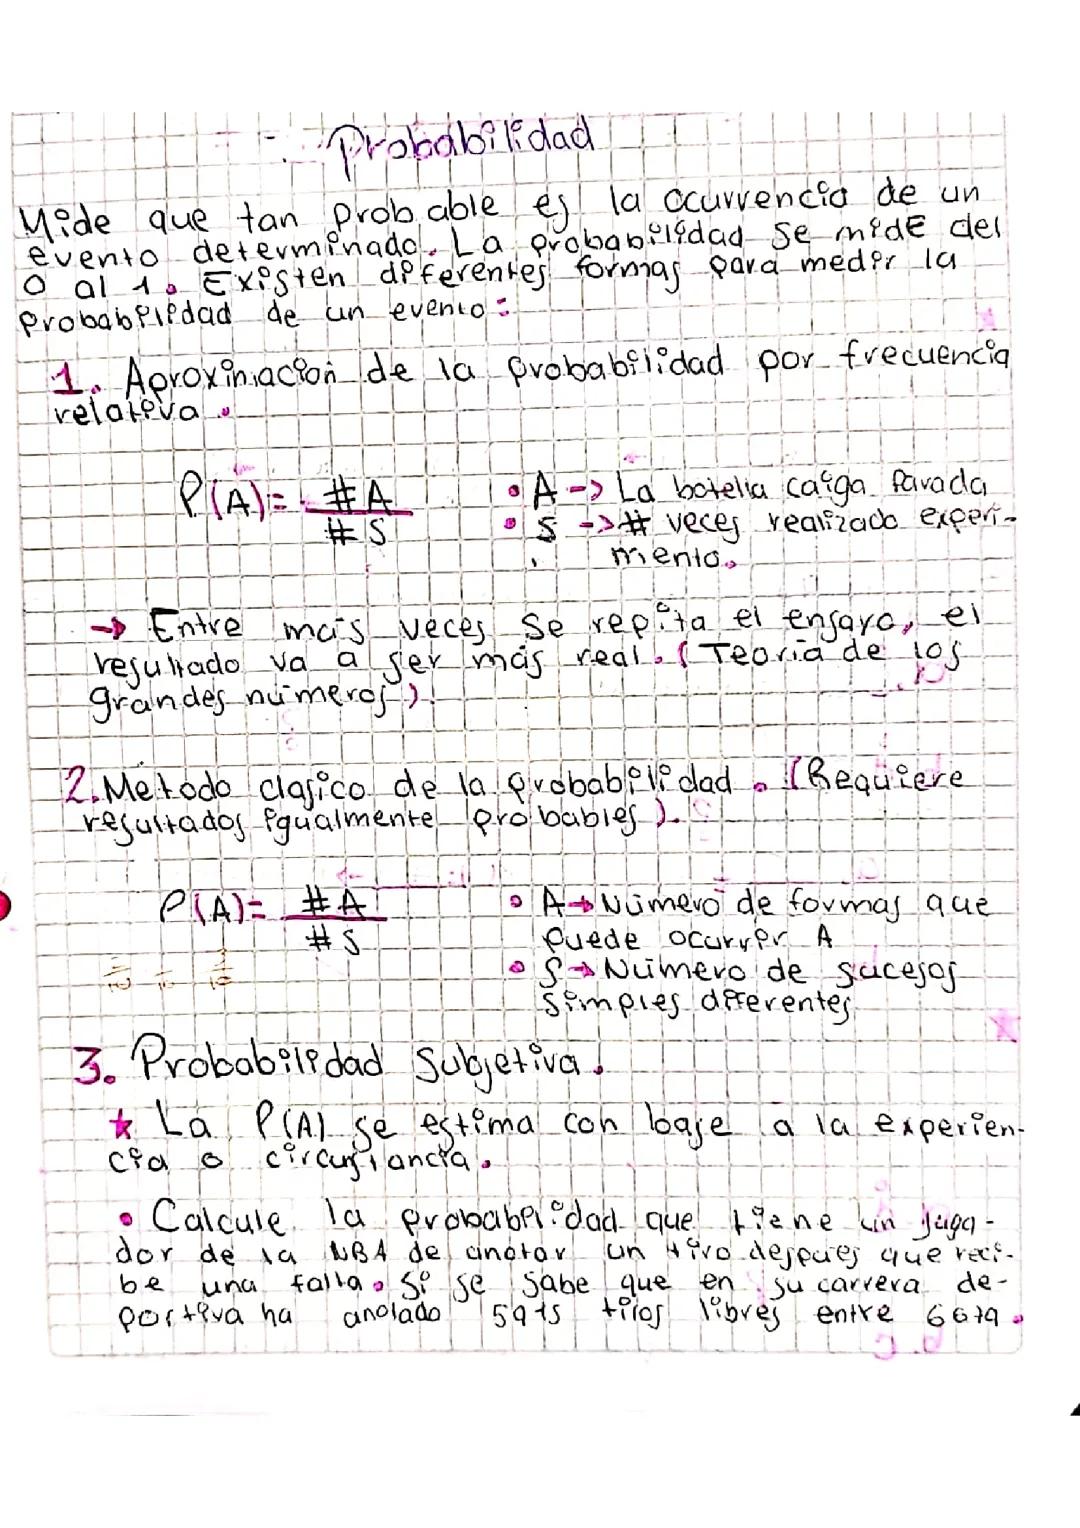 Probabilidad
Mide que tan probable es la ocurrencia de un
evento determinado. La probabilidad se mide del
0 al 1. Existen diferentes formas para medir la
probabilidad de un evento:
1. Aproximación de la probabilidad por frecuencia
relativa.
P(A) = #A / #S
• A -> La botella caiga parada
• S -> # veces realizado experi-
miento.
→ Entre más veces se repita el ensayo, el
resultado va a ser más real. (Teoría de los
grandes números).
2. Metodo clasico de la probabilidad. (Requiere
resultados igualmente probables).
P(A) = #A / #S
• A → Número de formas que
puede ocurrir A
• S → Número de sucesos
simples diferentes
3. Probabilidad Subjetiva.
★ La P(A) se estima con base a la experien-
cia o circunstancia.
• Calcule la probabilidad que tiene un juga-
dor de la NBA de anotar un tiro despues que reci-
be una falta. Si se sabe que en su carrera de-
portiva ha anotado 5915 tiros libres entre 6679.